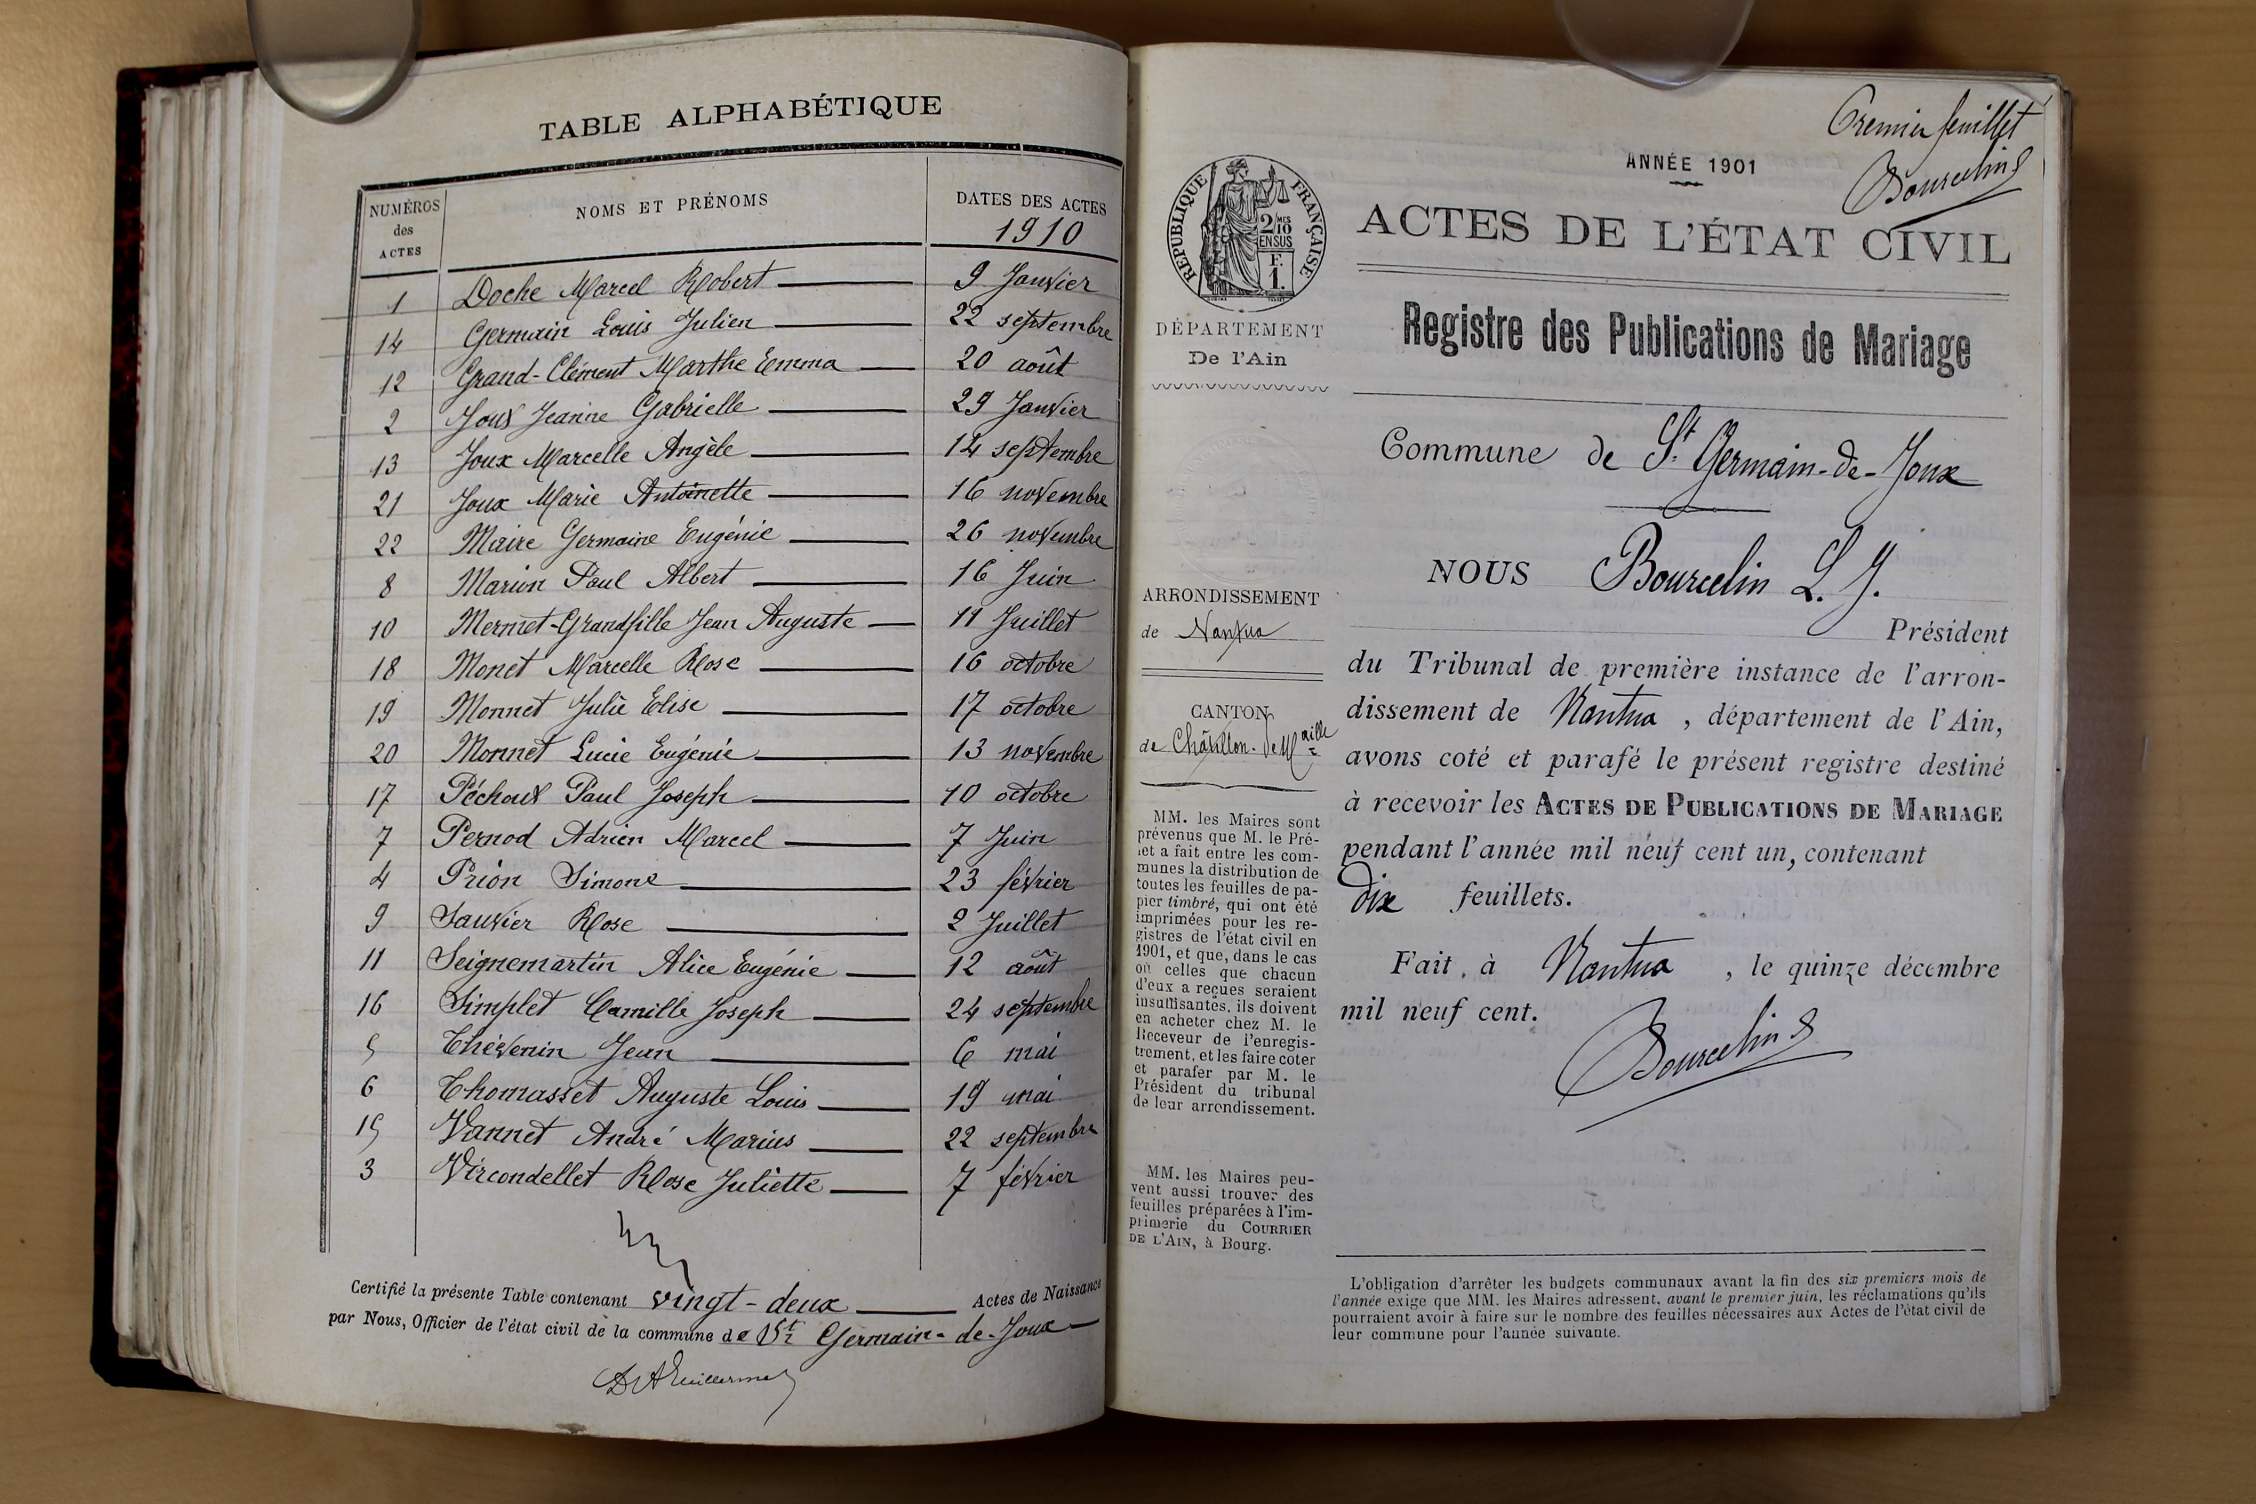 TABLE ALPHABÉTIQUE
NUMÉROS des ACTES
NOMS ET PRÉNOMS
DATES DES ACTES
1910
1 Doche Marcel Robert 9 Janvier
14 Germain Louis Julien 22 septembre
12 Grand-Clément Marthe Emma 20 août
2 Joux Jeanne Gabrielle 29 Janvier
13 Joux Marcelle Angèle 14 septembre
21 Joux Marie Antoinette 16 novembre
22 Maire Germaine Eugénie 26 novembre
8 Marion Paul Albert 16 Juin
10 Mermet-Grandfille Jean Auguste 11 Juillet
18 Monet Marcelle Rose 16 octobre
19 Monnet Julie Elise 17 octobre
20 Monnet Lucie Eugénie 13 novembre
17 Péchoux Paul Joseph 10 octobre
7 Pernod Adrien Marcel 7 Juin
4 Prion Simone 23 février
9 Sauvier Rose 2 Juillet
11 Seignemartin Alice Eugénie 12 août
16 Simplet Camille Joseph 24 septembre
5 Thévenin Jean 6 mai
6 Thomasset Auguste Louis 19 mai
15 Vannet André Marius 22 septembre
3 Vircondellet Rose Juliette 7 février
Certifié la présente Table contenant vingt-deux Actes de Naissance
par Nous, Officier de l'état civil de la commune de St Germain-de-Joux
Premier feuillet
Bourcelin
ANNÉE 1901
ACTES DE L'ÉTAT CIVIL
RÉPUBLIQUE FRANÇAISE
2/10 MES
EN SUS
F.
1.
DÉPARTEMENT
De l'Ain
Registre des Publications de Mariage
Commune de St Germain-de-Joux
NOUS Bourcelin L. J.
Président
du Tribunal de première instance de l'arron-
dissement de Nantua , département de l'Ain,
avons coté et parafé le présent registre destiné
à recevoir les ACTES DE PUBLICATIONS DE MARIAGE
pendant l'année mil neuf cent un, contenant
Dix feuillets.
Fait à Nantua , le quinze décembre
mil neuf cent.
Bourcelin
ARRONDISSEMENT
de Nantua
CANTON
de Châtillon-de-Maille
MM. les Maires sont
prévenus que M. le Pré-
fet a fait entre les com-
munes la distribution de
toutes les feuilles de pa-
pier timbré, qui ont été
imprimées pour les re-
gistres de l'état civil en
1901, et que, dans le cas
où celles que chacun
d'eux a reçues seraient
insuffisantes, ils doivent
en acheter chez M. le
Receveur de l'enregis-
trement, et les faire coter
et parafer par M. le
Président du tribunal
de leur arrondissement.
MM. les Maires peu-
vent aussi trouver des
feuilles préparées à l'im-
primerie du COURRIER
DE L'AIN, à Bourg.
L'obligation d'arrêter les budgets communaux avant la fin des six premiers mois de
l'année exige que MM. les Maires adressent, avant le premier juin, les réclamations qu'ils
pourraient avoir à faire sur le nombre des feuilles nécessaires aux Actes de l'état civil de
leur commune pour l'année suivante.